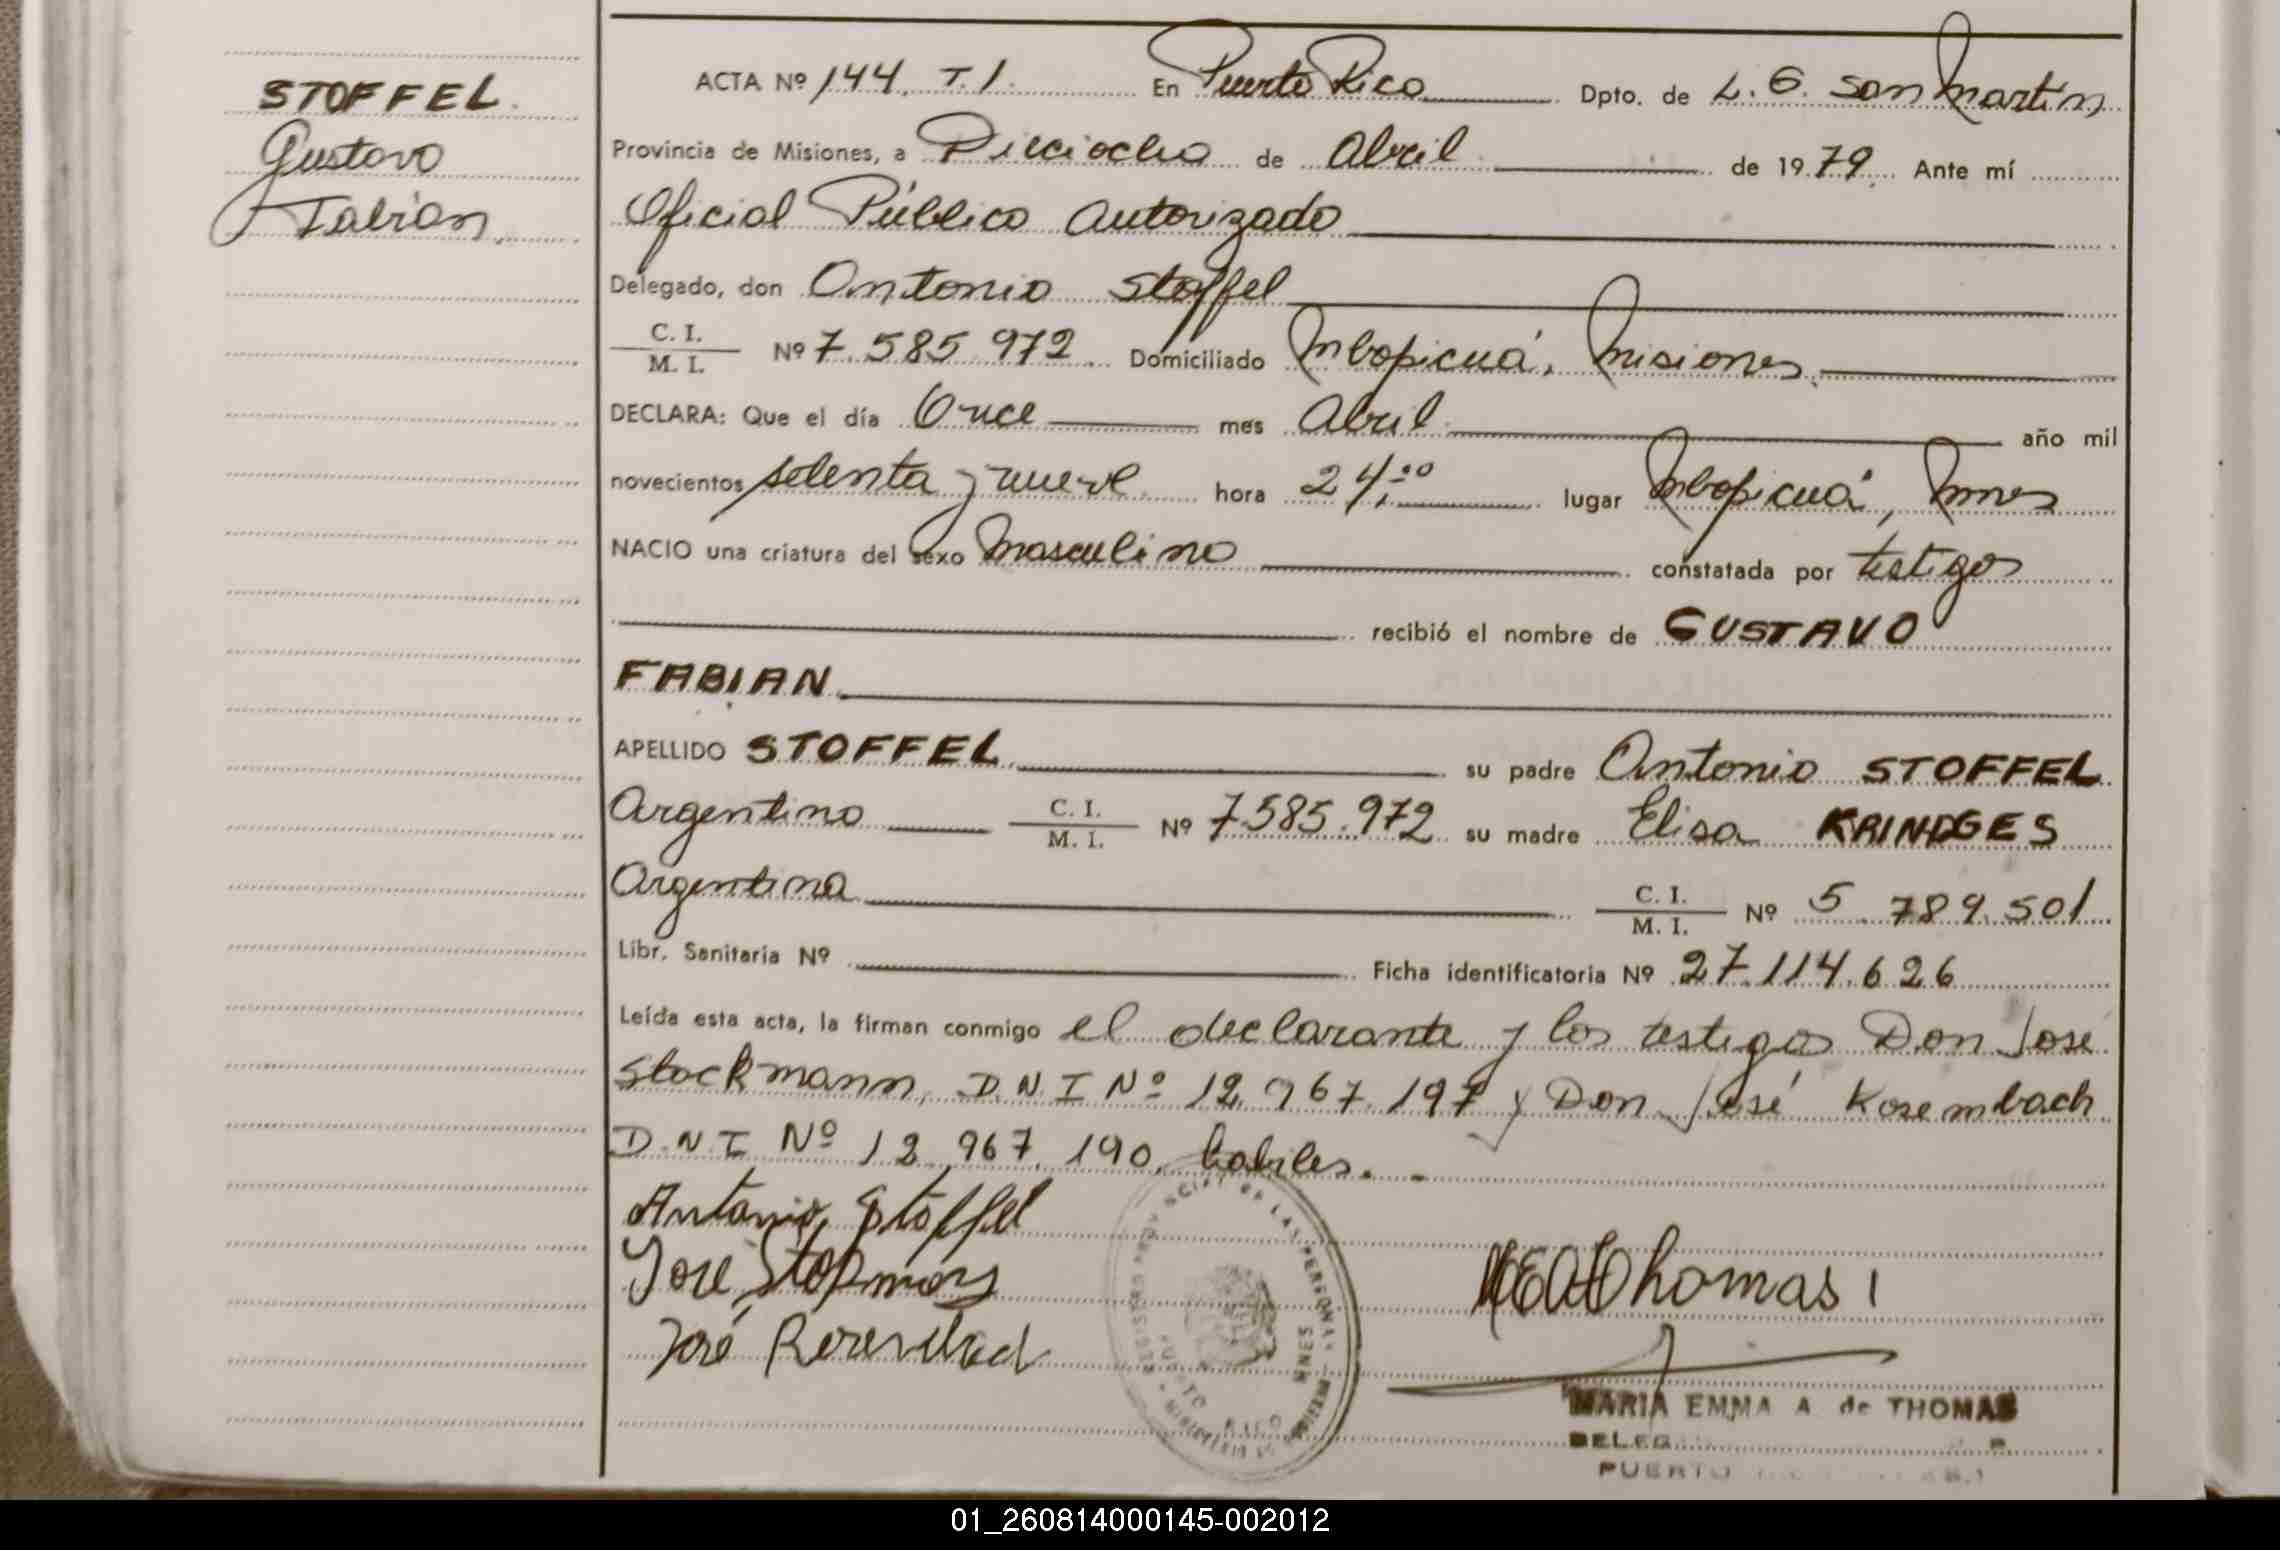 STOFFEL
Gustavo
Fabian
ACTA Nº 144. T.1. En Puerto Rico Dpto. de L. G. San Martin
Provincia de Misiones, a Dieciocho de Abril de 1979. Ante mí
Oficial Público Autorizado
Delegado, don Antonio Stoffel
C. I. / M. I. Nº 7.585.972 Domiciliado Mbopicuá, Misiones.
DECLARA: Que el día Once mes Abril año mil
novecientos setenta y nueve hora 24,00 lugar Mbopicuá, Mnes
NACIO una criatura del sexo Masculino constatada por testigos
recibió el nombre de GUSTAVO
FABIAN
APELLIDO STOFFEL su padre Antonio STOFFEL
Argentino C. I. / M. I. Nº 7.585.972 su madre Elisa KRINDGES
Argentina C. I. / M. I. Nº 5.789.501
Libr. Sanitaria Nº Ficha identificatoria Nº 27.114.626
Leída esta acta, la firman conmigo el declarante y los testigos Don José
Stockmann, D.N.I Nº 12.967.197 y Don José Rosembach
D.N.I Nº 12.967.190. habiles. -
Antonio Stoffel
José
José
MARIA EMMA A. de THOMAS
PUERTO
01_260814000145-002012